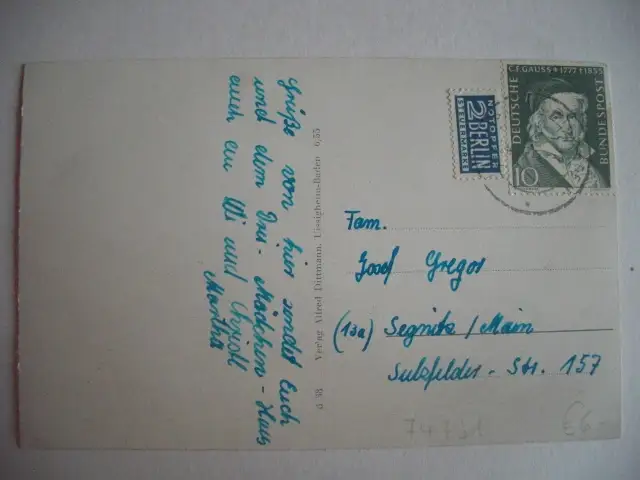 Grüße von hier sendet Euch
und dem Drei-Mädchen-Haus
euch ein Wi und Christl
Martha
d 38 Verlag Alfred Dittmann, Uissigheim-Baden 6,55
NOTOPFER
2 BERLIN
STEUERMARKE
C.F.GAUSS * 1777 † 1855
DEUTSCHE
BUNDESPOST
10
Fam.
Josef Gregor
(13a) Segnitz / Main
Sulzfelder-Str. 157
74731
€6-